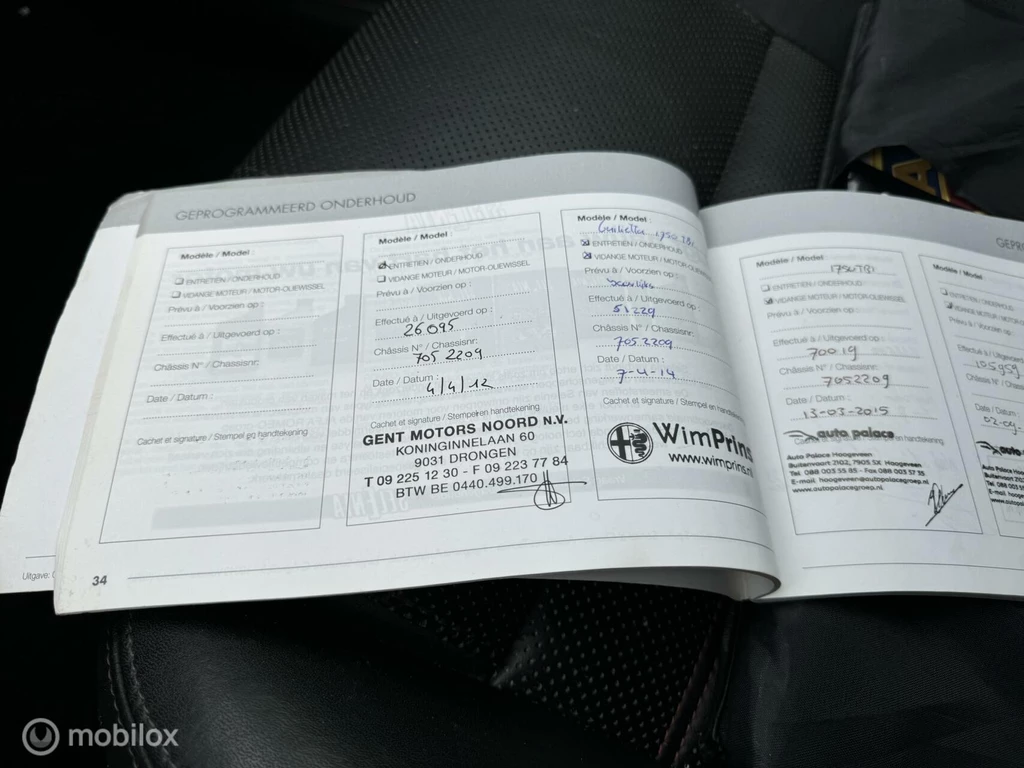 GEPROGRAMMEERD ONDERHOUD
Modèle / Model :
ENTRETIEN / ONDERHOUD
VIDANGE MOTEUR / MOTOR-OLIEWISSEL
Prévu à / Voorzien op :
Effectué à / Uitgevoerd op :
Châssis N° / Chassisnr:
Date / Datum :
Cachet et signature / Stempel en handtekening
Modèle / Model :
ENTRETIEN / ONDERHOUD
VIDANGE MOTEUR / MOTOR-OLIEWISSEL
Prévu à / Voorzien op :
Effectué à / Uitgevoerd op :
26095
Châssis N° / Chassisnr:
705 2209
Date / Datum :
4/4/12
Cachet et signature / Stempel en handtekening
GENT MOTORS NOORD N.V.
KONINGINNELAAN 60
9031 DRONGEN
T 09 225 12 30 - F 09 223 77 84
BTW BE 0440.499.170
Modèle / Model :
1750 TBi
ENTRETIEN / ONDERHOUD
VIDANGE MOTEUR / MOTOR-OLIEWISSEL
Prévu à / Voorzien op :
Effectué à / Uitgevoerd op :
51229
Châssis N° / Chassisnr:
7052209
Date / Datum :
7-4-14
Cachet et signature / Stempel en handtekening
WimPrins
www.wimprins.nl
34
Uitgave:
Modèle / Model :
1750TBI
ENTRETIEN / ONDERHOUD
VIDANGE MOTEUR / MOTOR-OLIEWISSEL
Prévu à / Voorzien op :
Effectué à / Uitgevoerd op :
70019
Châssis N° / Chassisnr:
7052209
Date / Datum :
13-03-2015
auto palace
Auto Palace Hoogeveen
Buitenvaart 2102, 7905 SX Hoogeveen
Tel. 088 003 55 85 - Fax 088 003 57 35
E-mail hoogeveen@autopalacegroep.nl
www.autopalacegroep.nl
GEPRO
Modèle / Model
ENTRETIEN / ONDERHOUD
VIDANGE MOTEUR / MOTOR
Prévu à / Voorzien
Effectué à / Uitgevoer
105959
Châssis N° / Chass
Date / Datum
02-09-
Cachet et
auto
Auto Palace
Buitenvaart
Tel. 088 00
E-mail hooge
www.autop
mobilox